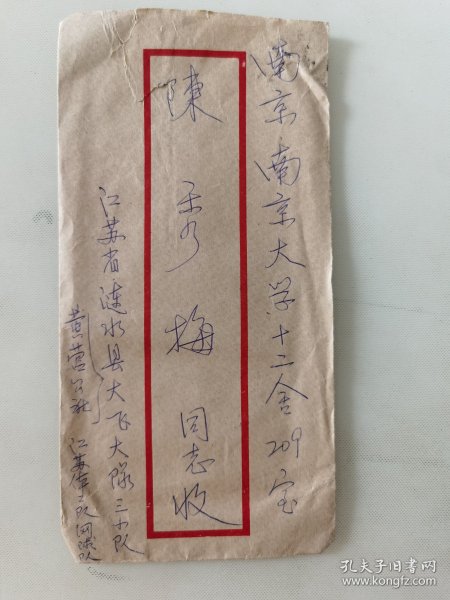 南京南京大学十二舍209室
陳秀梅同志收
江苏省涟水县大飞大隊三小队
黄营公社 江苏
孔夫子旧书网
www.kongfz.com